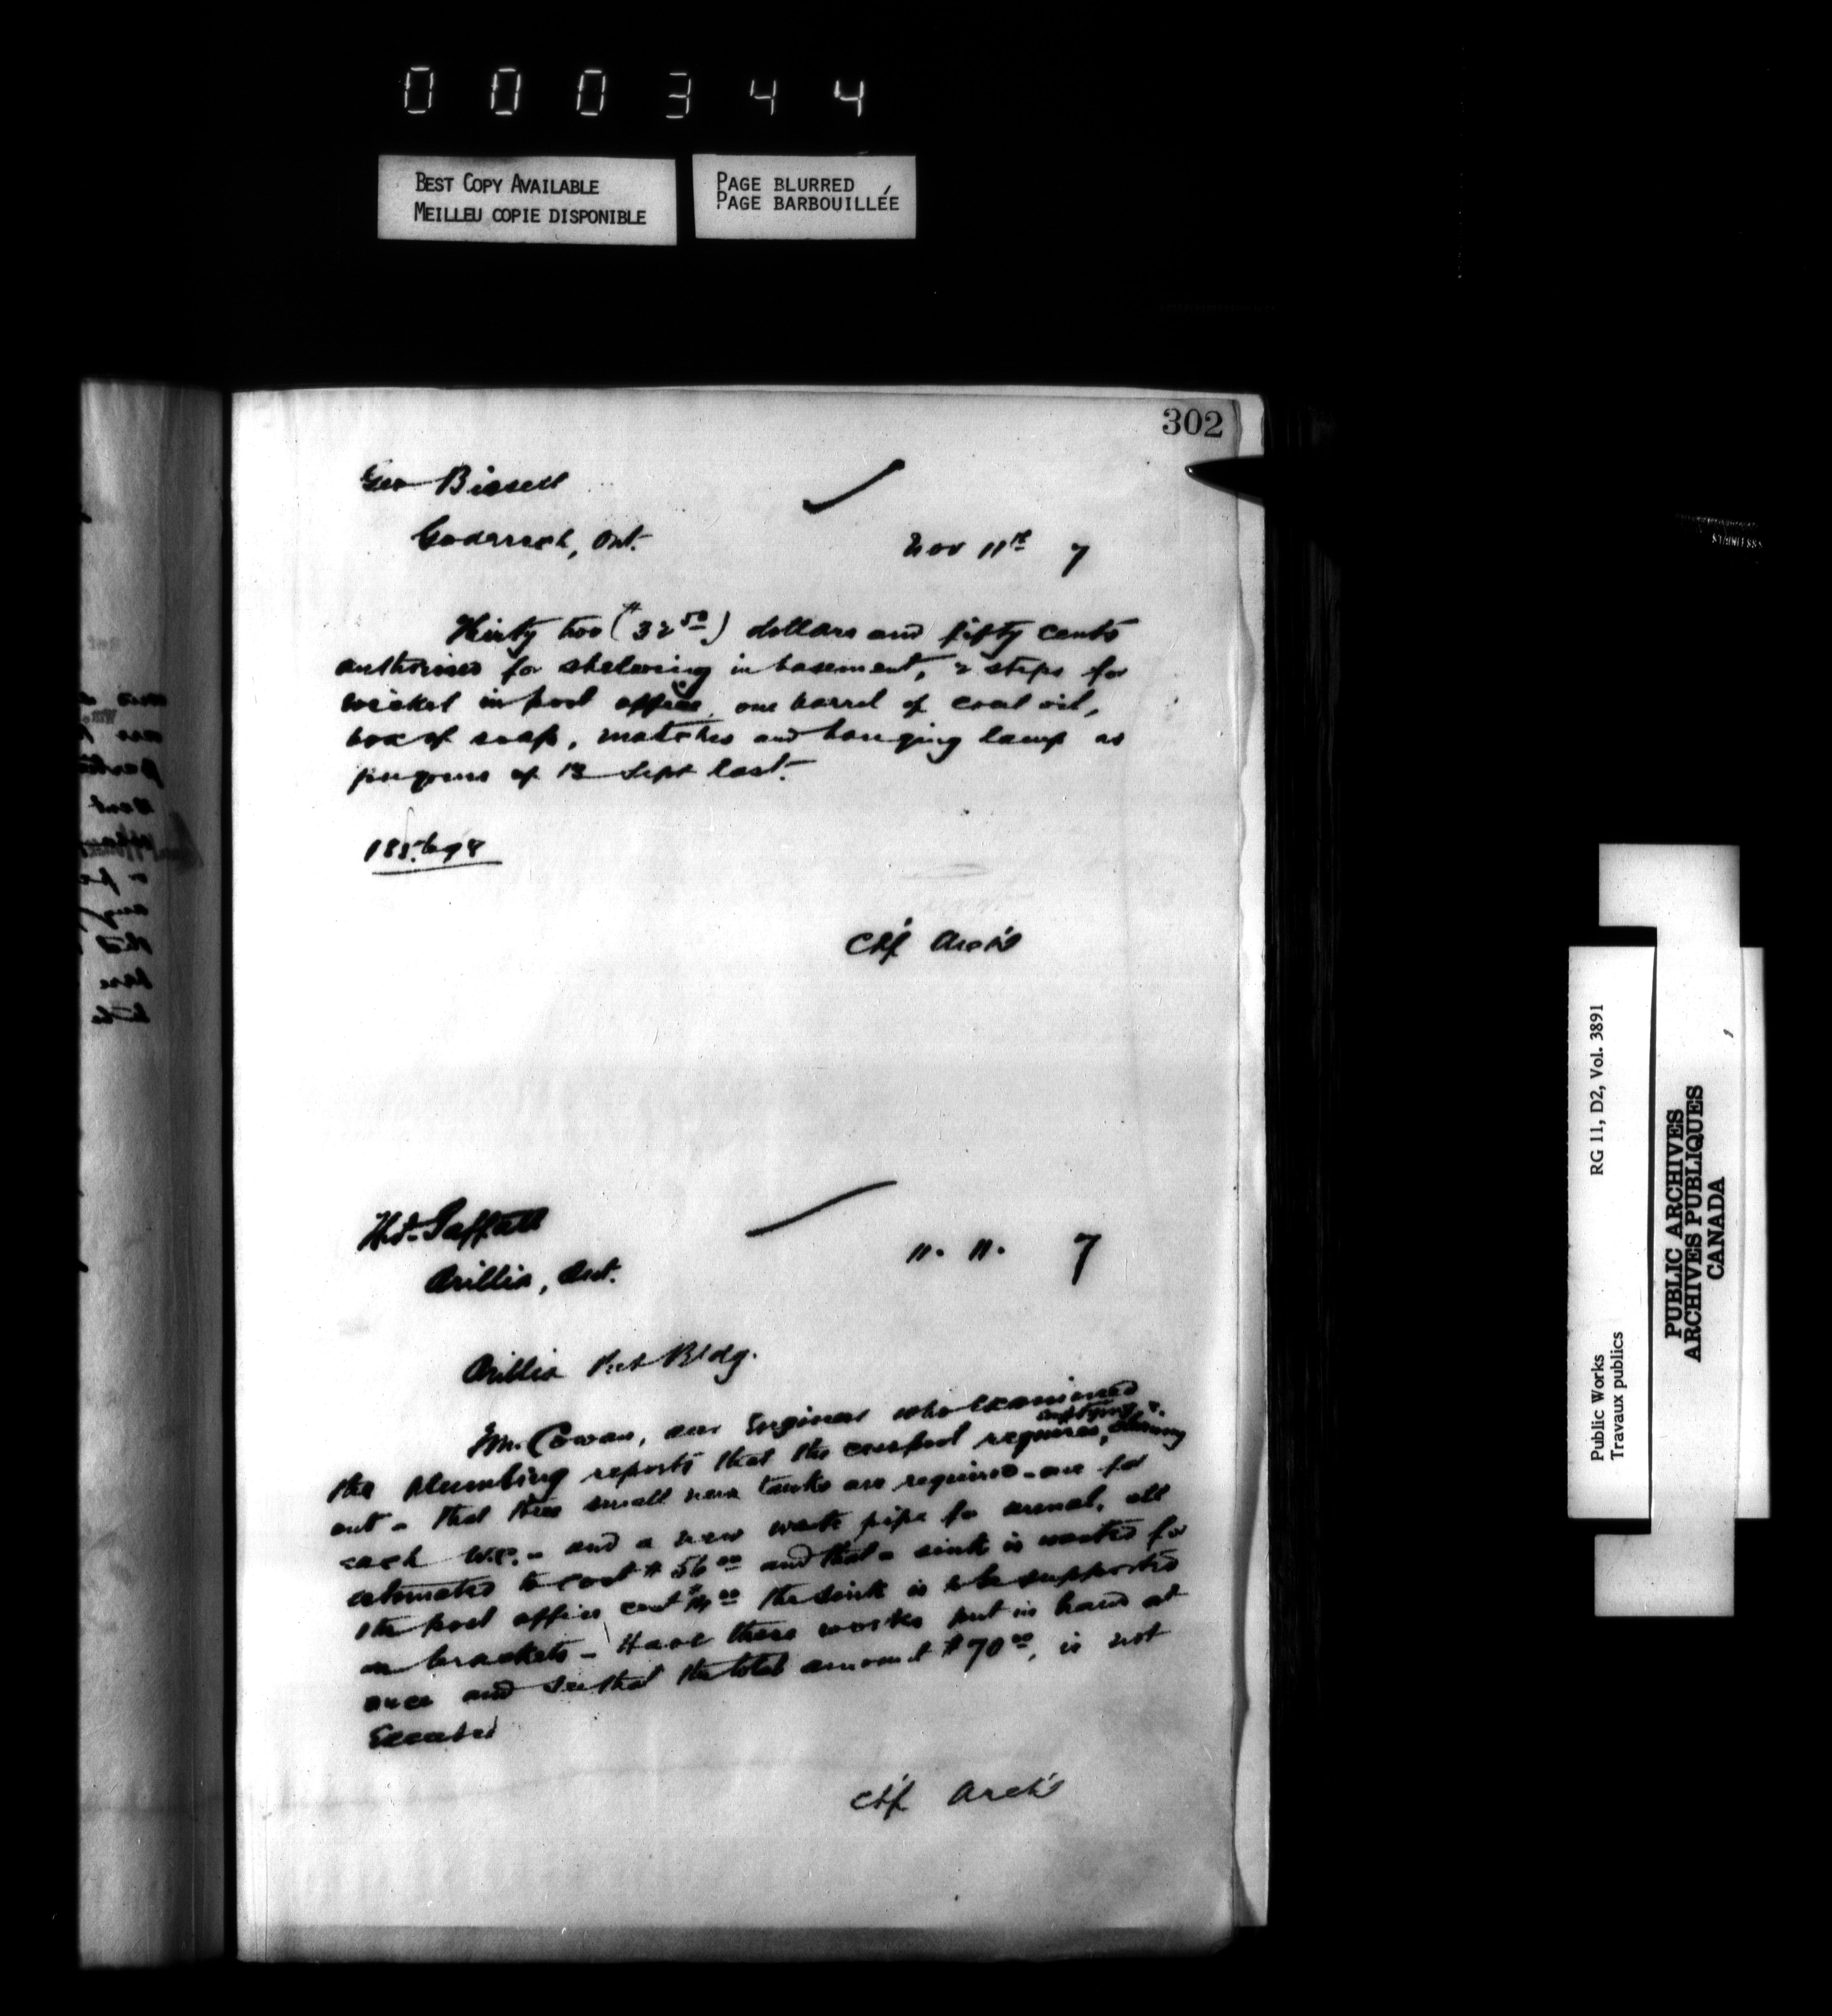 000344
BEST COPY AVAILABLE
MEILLEU COPIE DISPONIBLE
PAGE BLURRED
PAGE BARBOUILLÉE
302
Geo Bissell
Goderich, Ont.
Nov 11th 7
Thirty two ($32 50) dollars and fifty cents
authorised for shelving in basement, 2 steps for
wicket in post office, one barrel of coal oil,
box of soap, matches and hanging lamp as
of 13 Sept last.
Chf Arch't
Orillia, Ont.
11. 11. 7
Orillia Post Bldg.
Mr. Cowan, our Engineer who examined
the plumbing reports that the cesspool requires, emptying & cleaning
out - that three small new tanks are required - one for
each W.C. - and a new waste pipe for urinal, all
estimated to cost $56 00 and that a sink is wanted for
the post office cost $14 00 the sink is to be supported
on brackets - Have these works put in hand at
once and see that the total amount $70 00, is not
Exceeded
Chf Arch't
Public Works
Travaux publics
RG 11, D2, Vol. 3891
PUBLIC ARCHIVES
ARCHIVES PUBLIQUES
CANADA